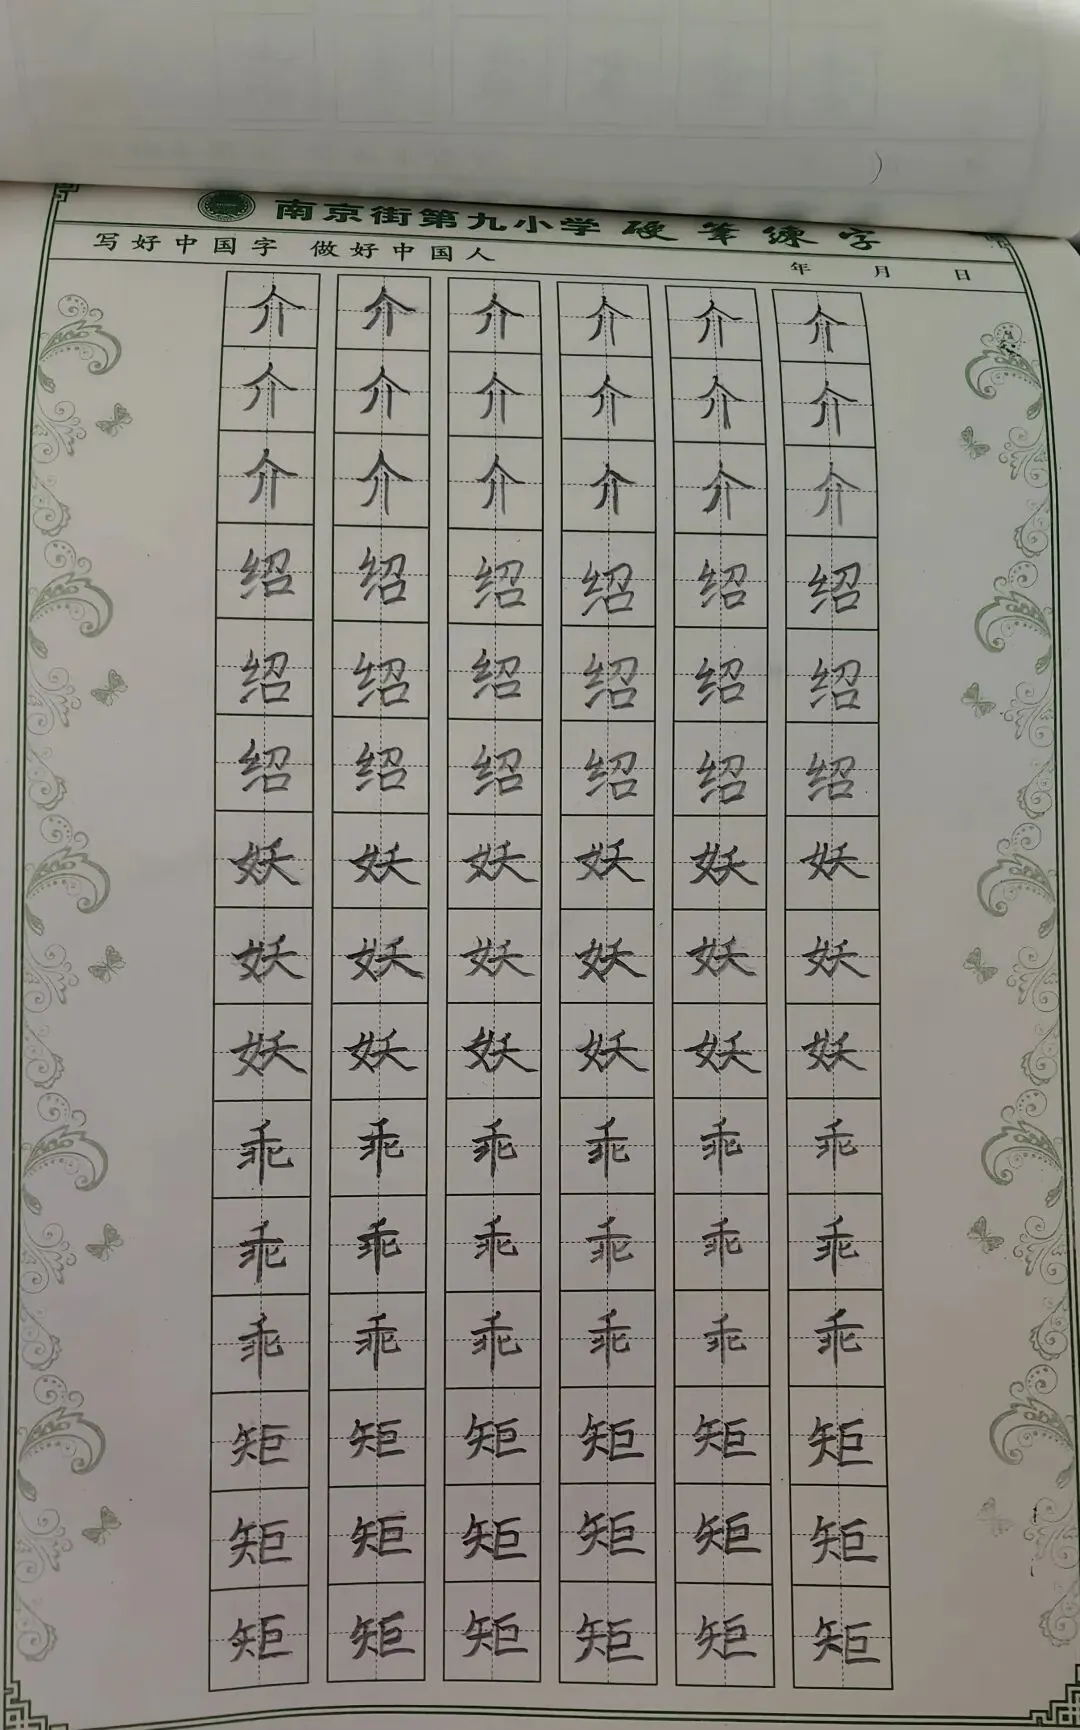 南京街第九小学硬笔练字
写好中国字 做好中国人 年 月 日
介 介 介 介 介 介
介 介 介 介 介 介
介 介 介 介 介 介
绍 绍 绍 绍 绍 绍
绍 绍 绍 绍 绍 绍
绍 绍 绍 绍 绍 绍
妖 妖 妖 妖 妖 妖
妖 妖 妖 妖 妖 妖
妖 妖 妖 妖 妖 妖
乖 乖 乖 乖 乖 乖
乖 乖 乖 乖 乖 乖
乖 乖 乖 乖 乖 乖
矩 矩 矩 矩 矩 矩
矩 矩 矩 矩 矩 矩
矩 矩 矩 矩 矩 矩